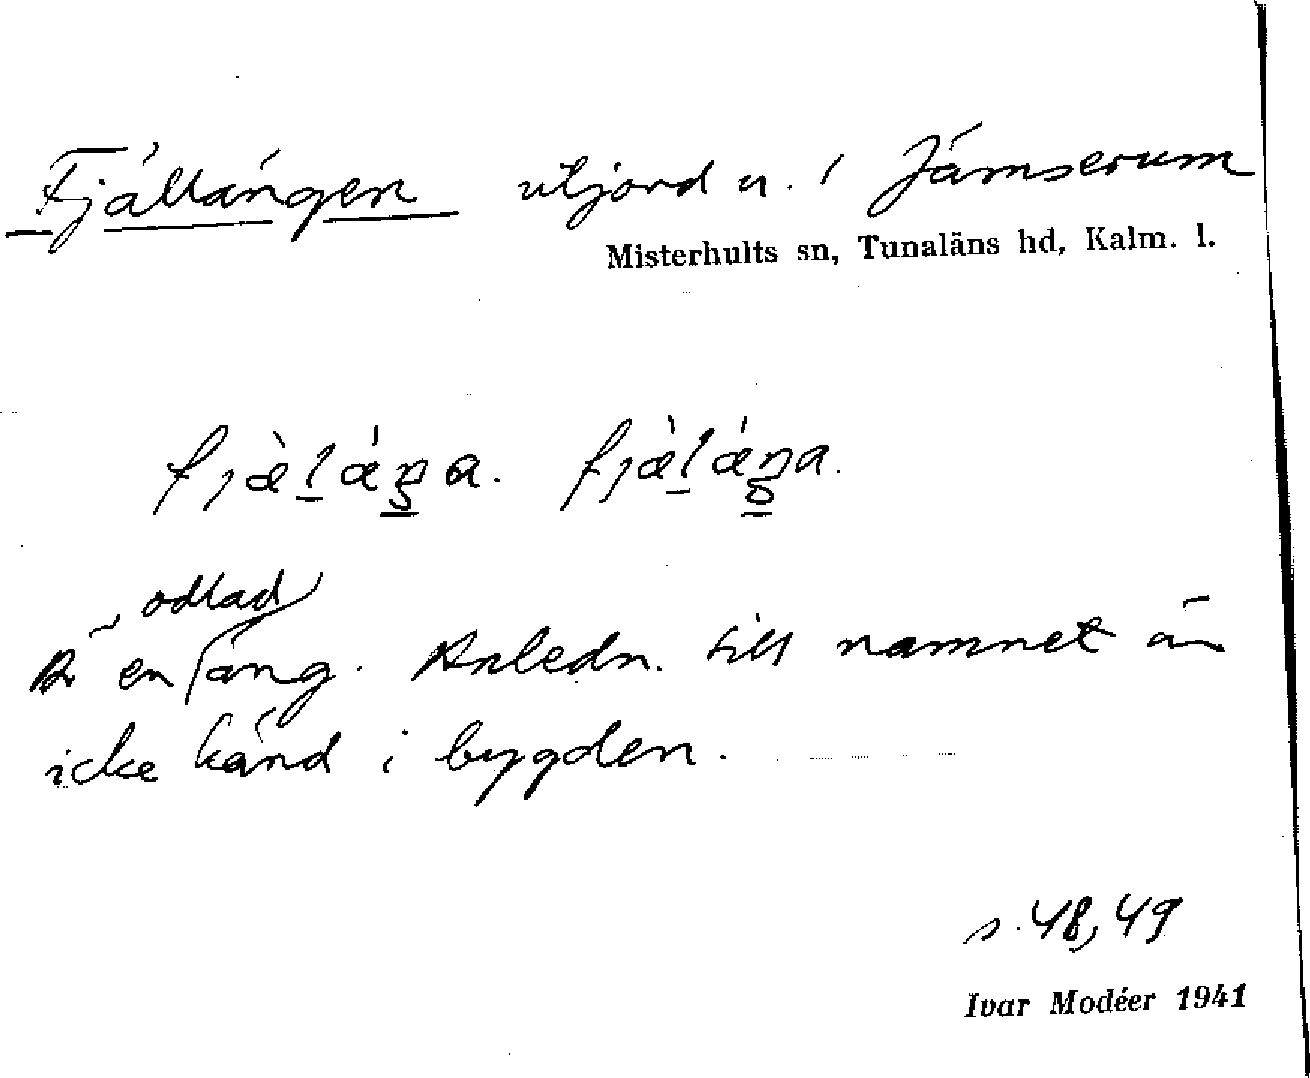 Fjällängen utjord u. i Jämserum
Misterhults sn, Tunaläns hd, Kalm. l.
fjæ̀l̠ǽŋa. fjæ̀l̠ǽŋa.
odlad
Är en äng. Anledn. till namnet är
icke känd i bygden.
s. 48, 49
Ivar Modéer 1941